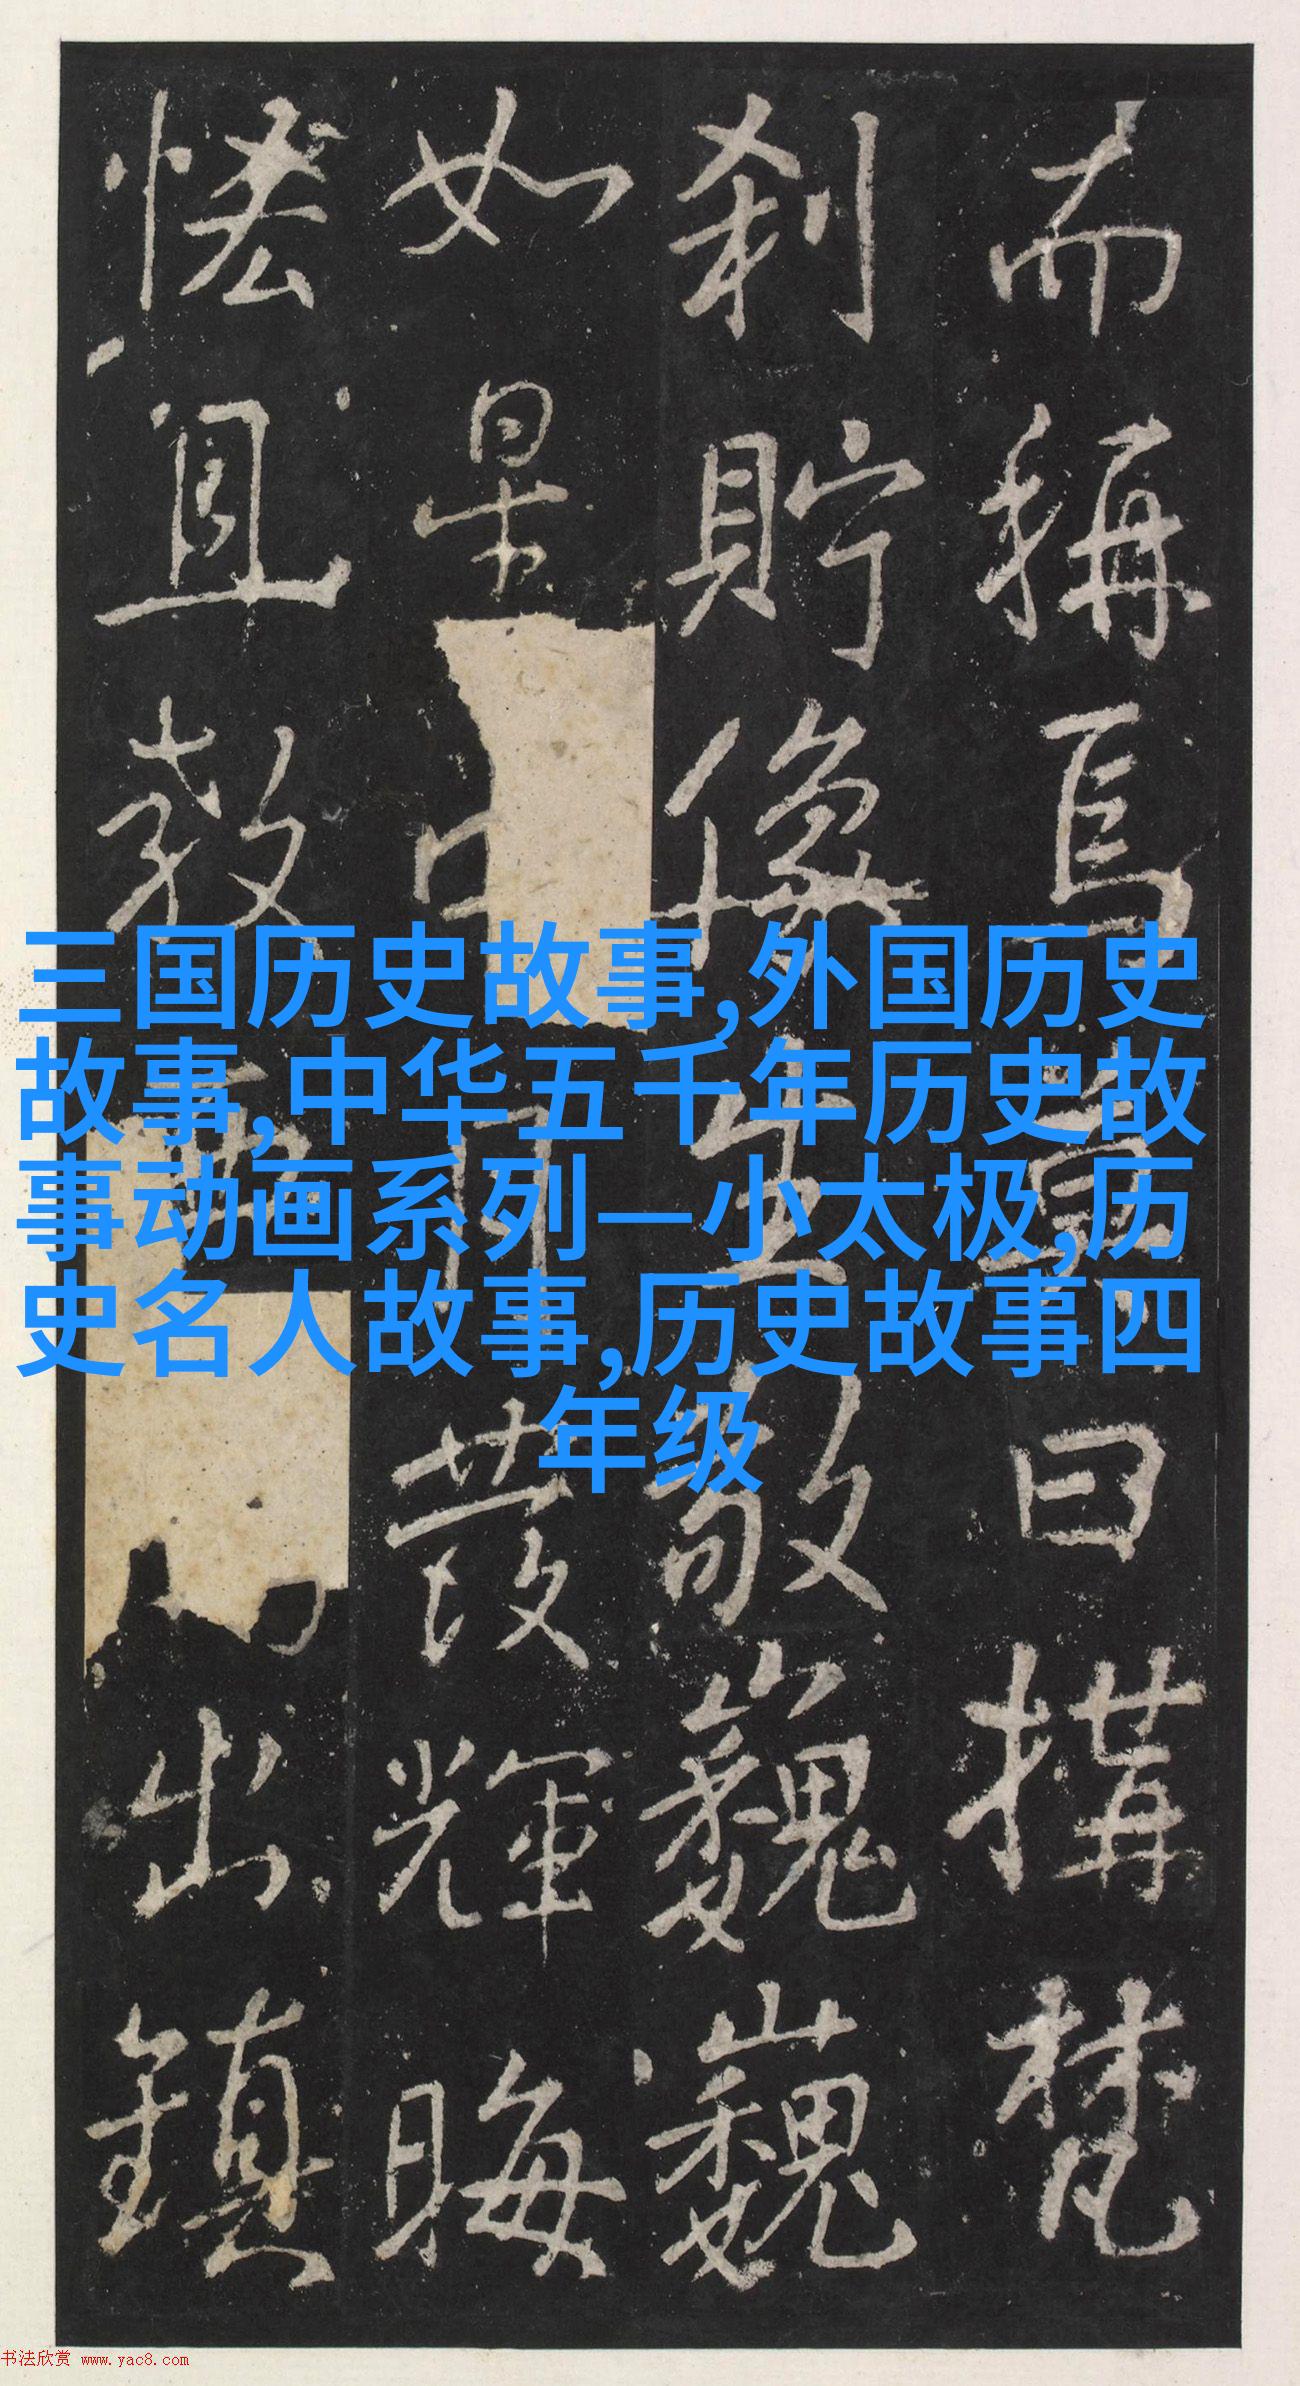 三国历史故事,外国历史
故事,中华五千年历史故
事动画系列—小太极,历
史名人故事,历史故事四
年级
而稱焉曰搆梵
刹貯像生敬巍巍
如月發輝晦
且教出鎮
书法欣赏 www.yac8.com